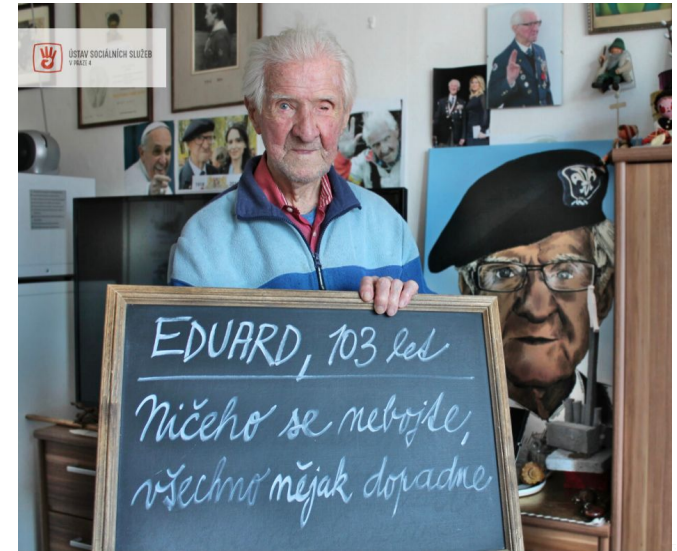 ÚSTAV SOCIÁLNÍCH SLUŽEB
V PRAZE 4
EDUARD, 103 let
Ničeho se nebojte,
všechno nějak dopadne